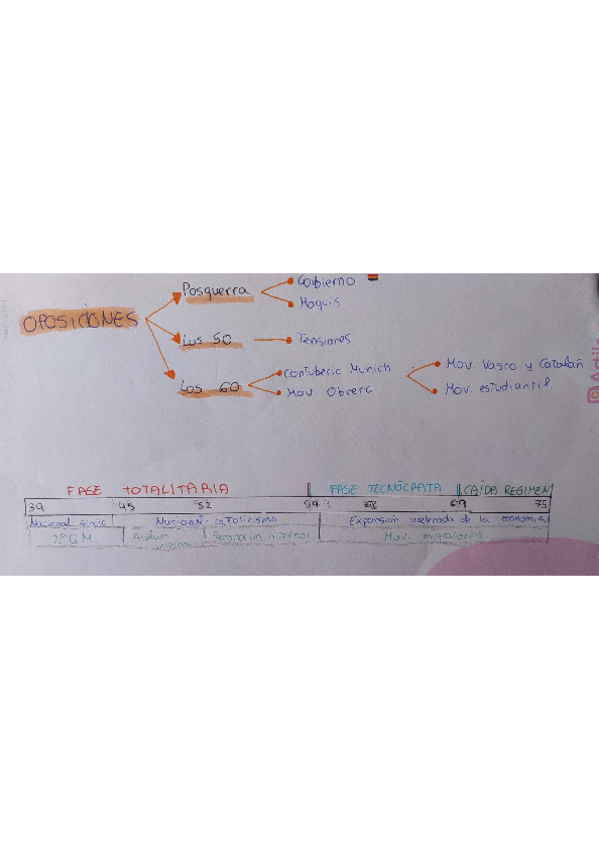 Posguerra
Gobierno
Maquis
OPOSICIONES
Los 50
Tensiones
Los 60
Contuberio Munich
Mov. Obrero
Mov. Vasco y Catalán
Mov. estudiantil.
FASE TOTALITARIA
FASE TECNÓCRATA
CAÍDA REGIMEN
39 45 52 59 69 75
Nacional sindic
Nacional catolicismo
Expansión acelerada de la economía
2ª GM
Mov. migratorios